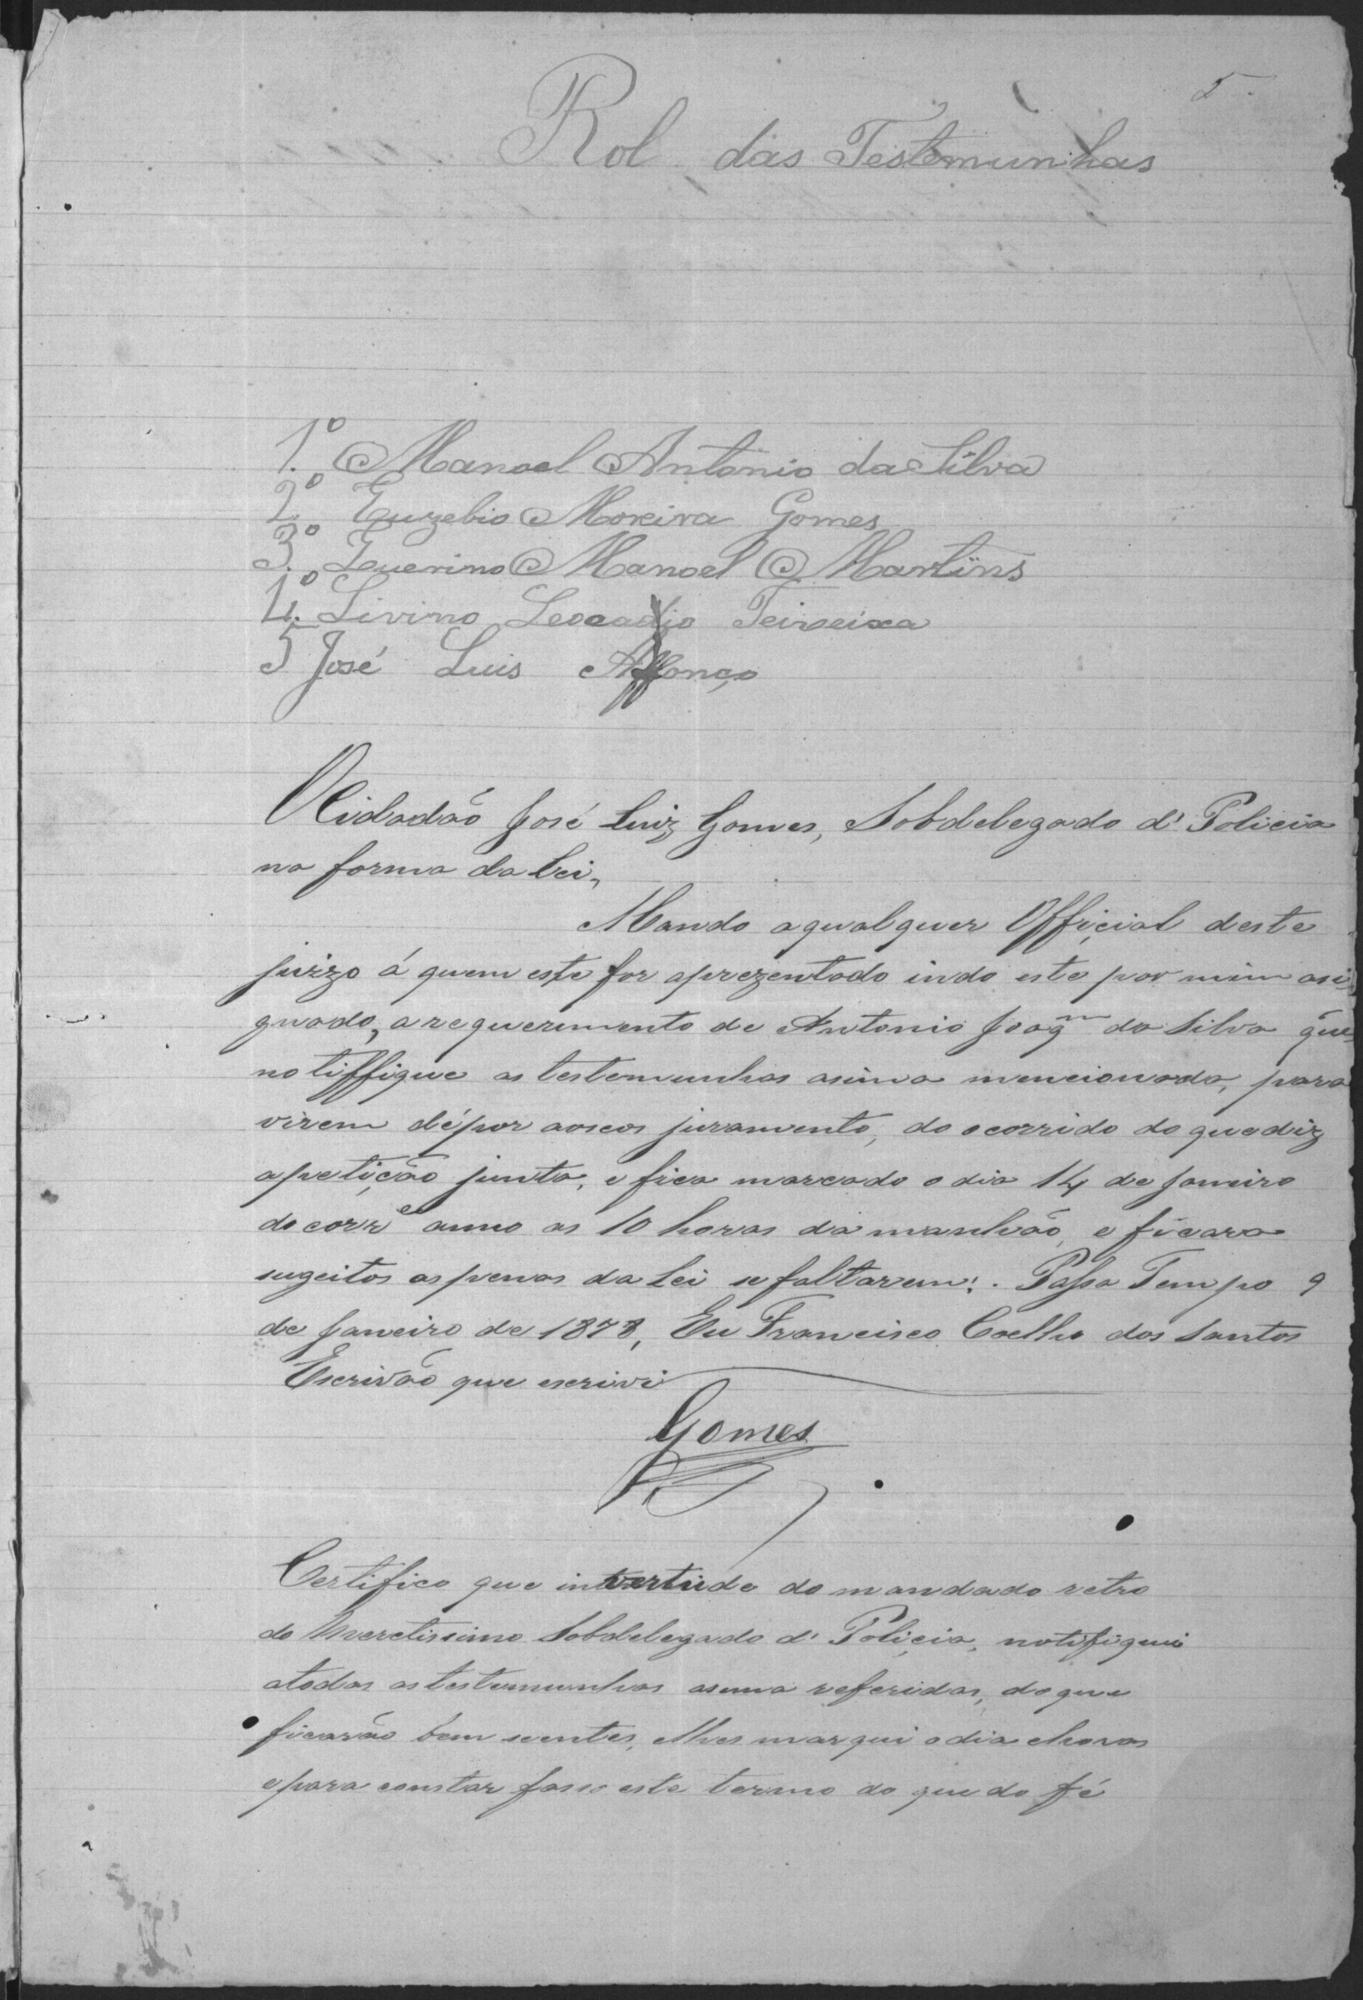 5
Rol das Testemunhas
1.º Manoel Antonio da Silva
2.º Euzebio Moreira Gomes
3.º Zuerino Manoel Martins
4.º Livino Leocadio Teixeixa
5 José Luis Affonço
O Cidadão José Luiz Gomes, Sobdelegado d' Policia
na forma da Lei,
Mando aqualquer Official deste
juizo á quem este for aprezentado indo este por mim asi
gnado, a requerimento de Antonio Joaqm da Silva que
notiffique as testemunhas asima mencionada, para
virem dépor aoseos juramento, do ocorrido do que diz
apetição junta, e fica marcado o dia 14 de janeiro
do corre anno as 10 horas da manhão, e ficara
sugeitos as penas da Lei se faltarem. Passa Tempo 9
de janeiro de 1878, Eu Francisco Coelho dos Santos
Escrivão que escrivi
Gomes
Certifico que in vertude do mandado retro
do Meretissimo Sobdelegado d' Policia, notifiquei
atodas astestemunhas asima referidas, doque
ficarão bem sientes, elhes marqui odia ehoras
epara constar fasso este termo do que do fé